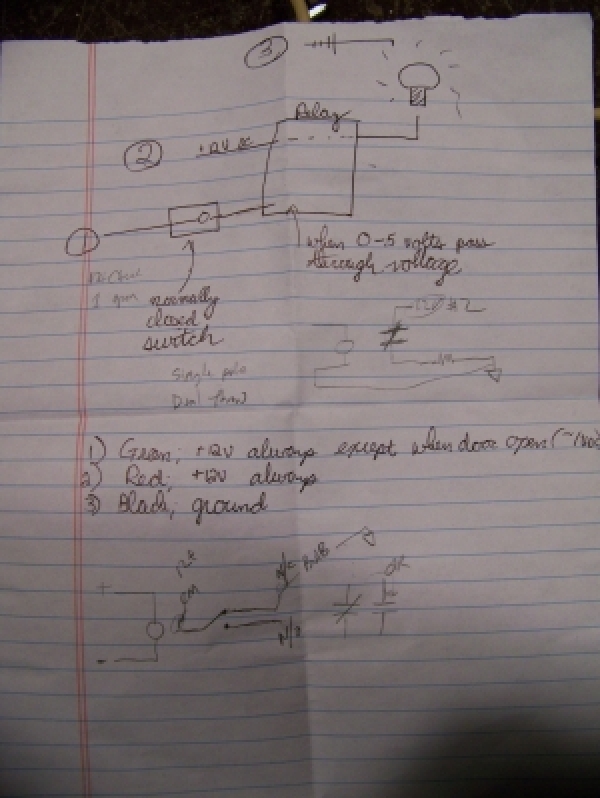 3
Relay
2 +12V DC
1
when 0-.5 volts pass
through voltage
1
normally
closed
switch
#2
Single pole
Dual throw
1) Green; +12V always except when door open
2) Red; +12V always
3) Black; ground
+
N/C BULB
N/O
-
OR